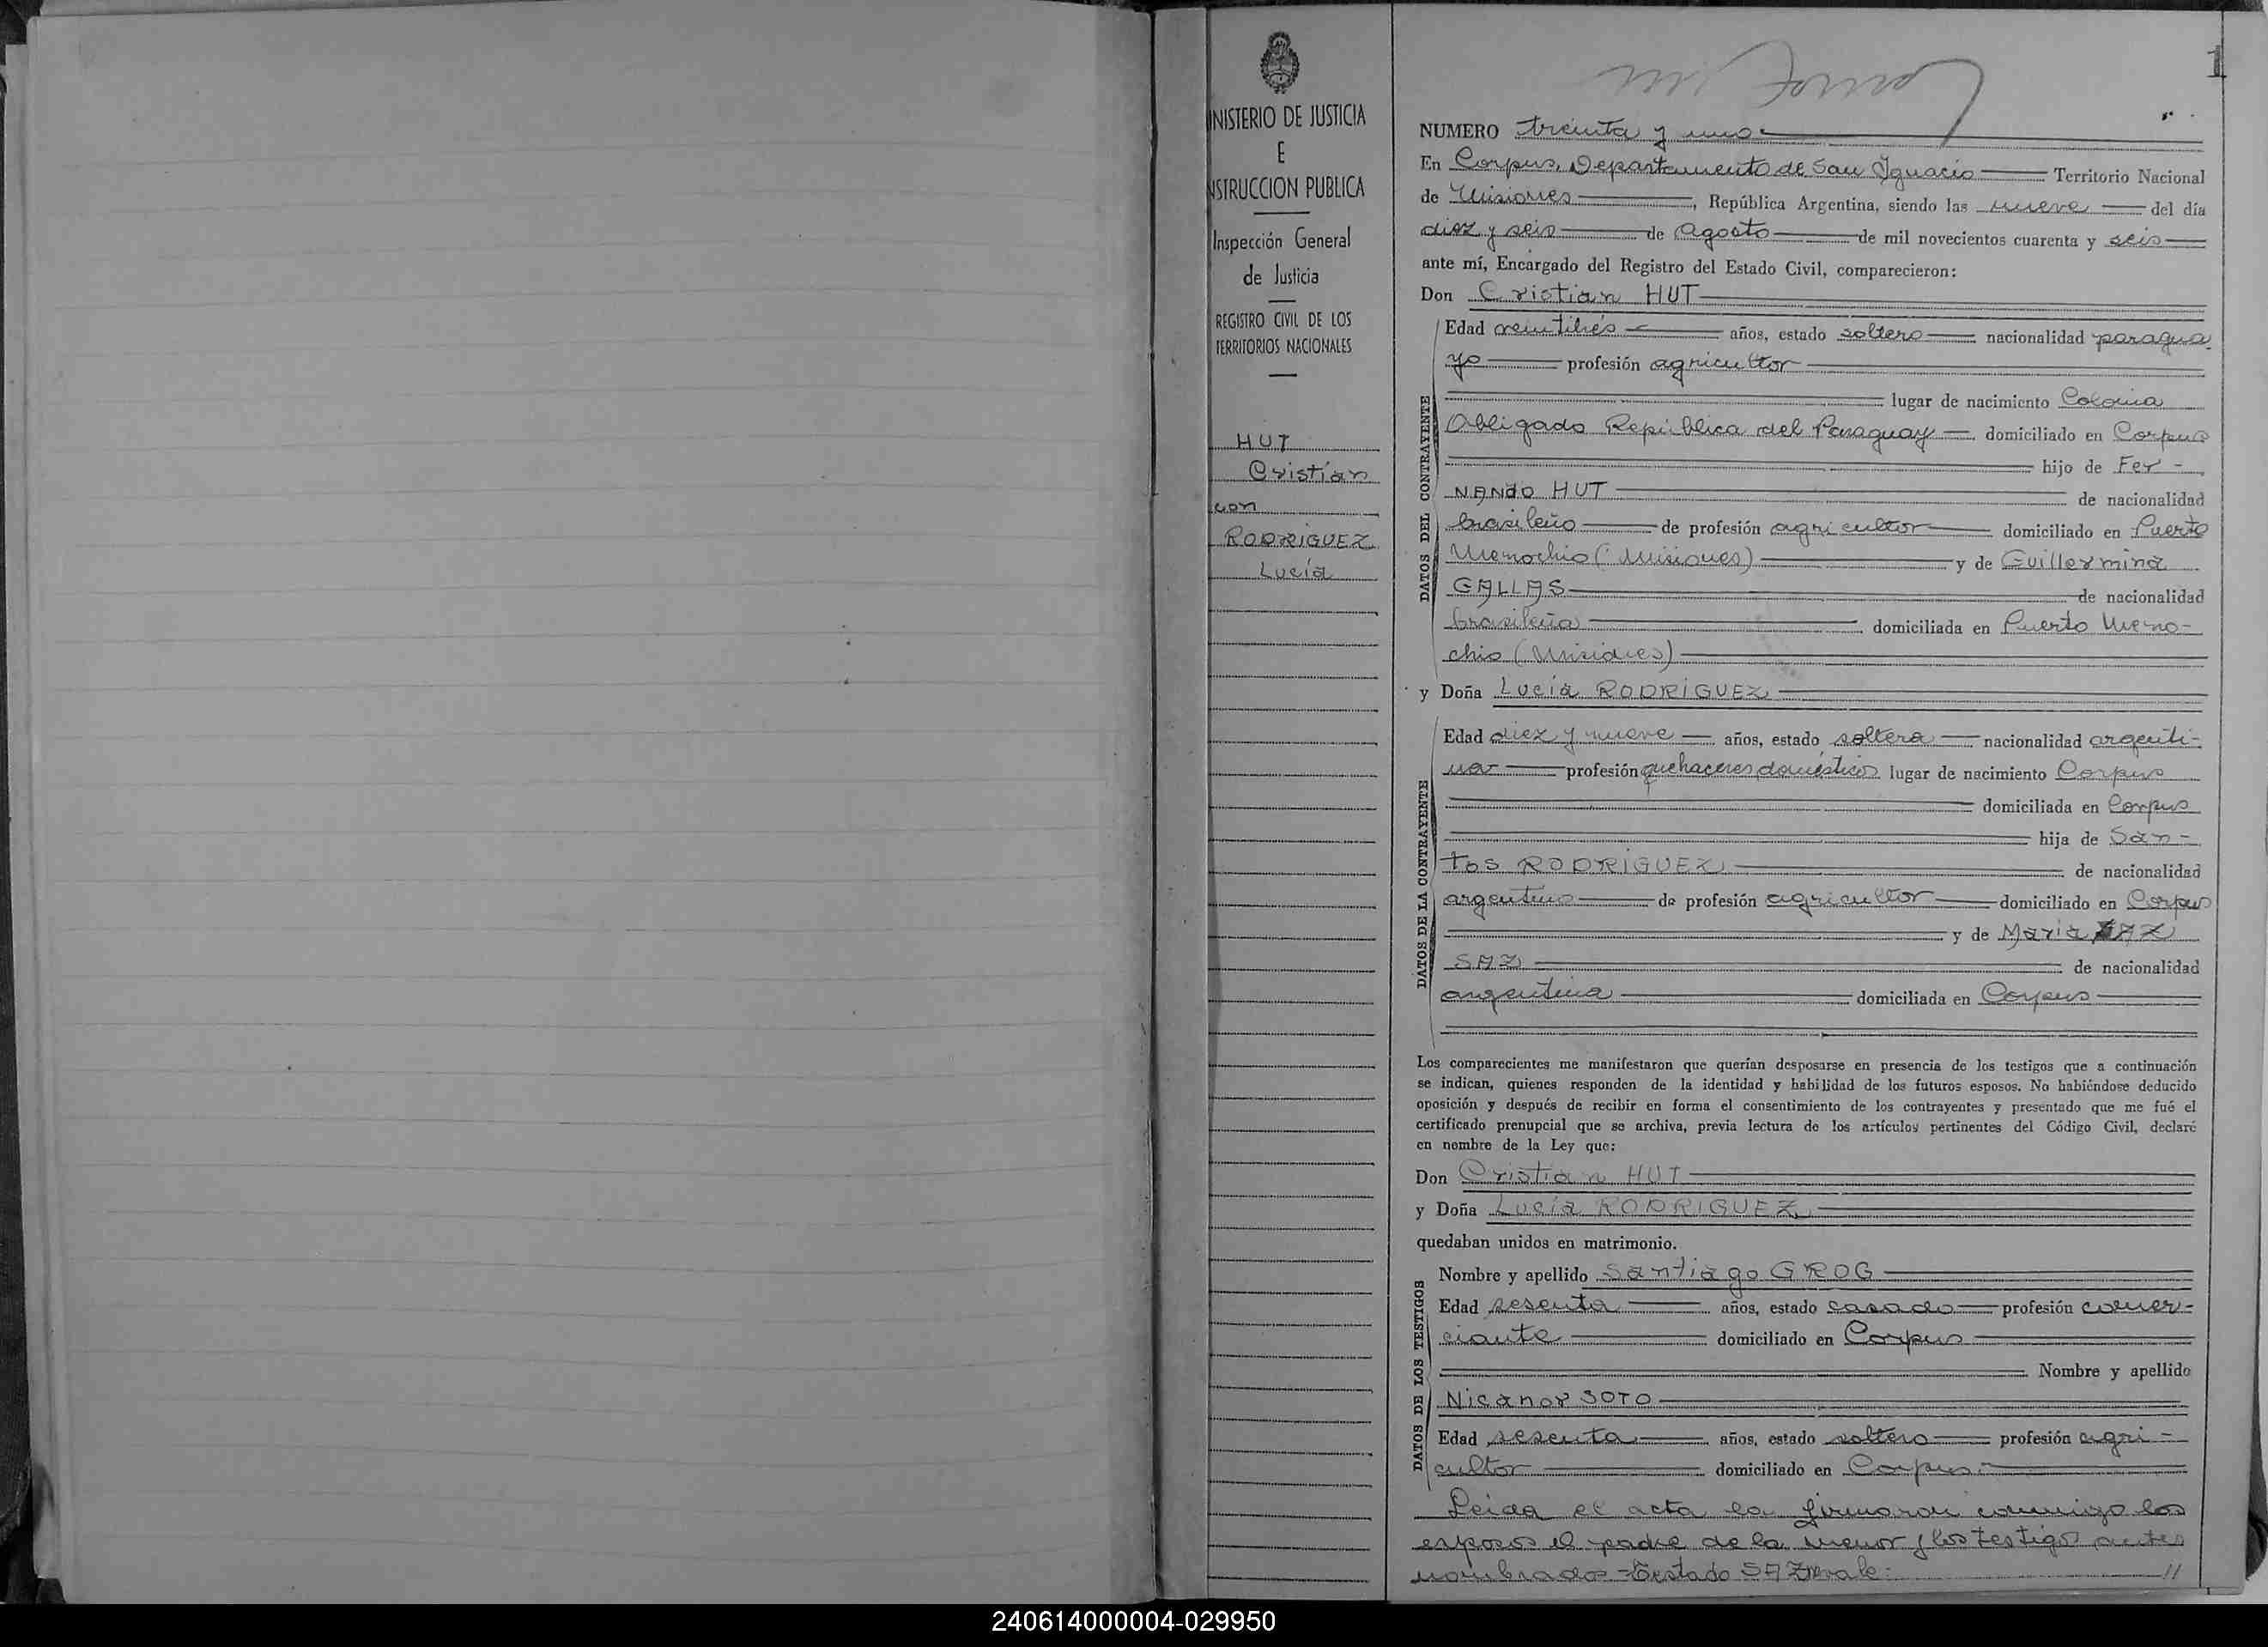 MINISTERIO DE JUSTICIA
E
INSTRUCCION PUBLICA
Inspección General
de Justicia
REGISTRO CIVIL DE LOS
TERRITORIOS NACIONALES
HUT
Cristian
con
RODRIGUEZ
Lucía
1
NUMERO treinta y uno
En Corpus, Departamento de San Ignacio Territorio Nacional
de Misiones, República Argentina, siendo las nueve del día
diez y seis de agosto de mil novecientos cuarenta y seis
ante mí, Encargado del Registro del Estado Civil, comparecieron:
Don Cristian HUT
DATOS DEL CONTRAYENTE
Edad veintitrés años, estado soltero nacionalidad paragua
yo profesión agricultor
lugar de nacimiento Colonia
Obligado República del Paraguay domiciliado en Corpus
hijo de Fer-
NANDO HUT de nacionalidad
brasileño de profesión agricultor domiciliado en Puerto
Menochio (Misiones) y de Guillermina
GALLAS de nacionalidad
brasileña domiciliada en Puerto Meno-
chio (Misiones)
y Doña Lucía RODRIGUEZ
DATOS DE LA CONTRAYENTE
Edad diez y nueve años, estado soltera nacionalidad argenti-
na profesión quehaceres domésticos lugar de nacimiento Corpus
domiciliada en Corpus
hija de San-
tos RODRIGUEZ de nacionalidad
argentino de profesión agricultor domiciliado en Corpus
y de Maria
SAZ de nacionalidad
argentina domiciliada en Corpus
Los comparecientes me manifestaron que querían desposarse en presencia de los testigos que a continuación
se indican, quienes responden de la identidad y habilidad de los futuros esposos. No habiéndose deducido
oposición y después de recibir en forma el consentimiento de los contrayentes y presentado que me fué el
certificado prenupcial que se archiva, previa lectura de los artículos pertinentes del Código Civil, declaré
en nombre de la Ley que:
Don Cristian HUT
y Doña Lucía RODRIGUEZ
quedaban unidos en matrimonio.
DATOS DE LOS TESTIGOS
Nombre y apellido Santiago GROG
Edad sesenta años, estado casado profesión comer-
ciante domiciliado en Corpus
Nombre y apellido
Nicanor SOTO
Edad sesenta años, estado soltero profesión agri-
cultor domiciliado en Corpus
Leida el acta la firmaron conmigo los
esposos el padre de la menor y los testigos antes
nombrados - Testado SAZ vale: //
240614000004-029950